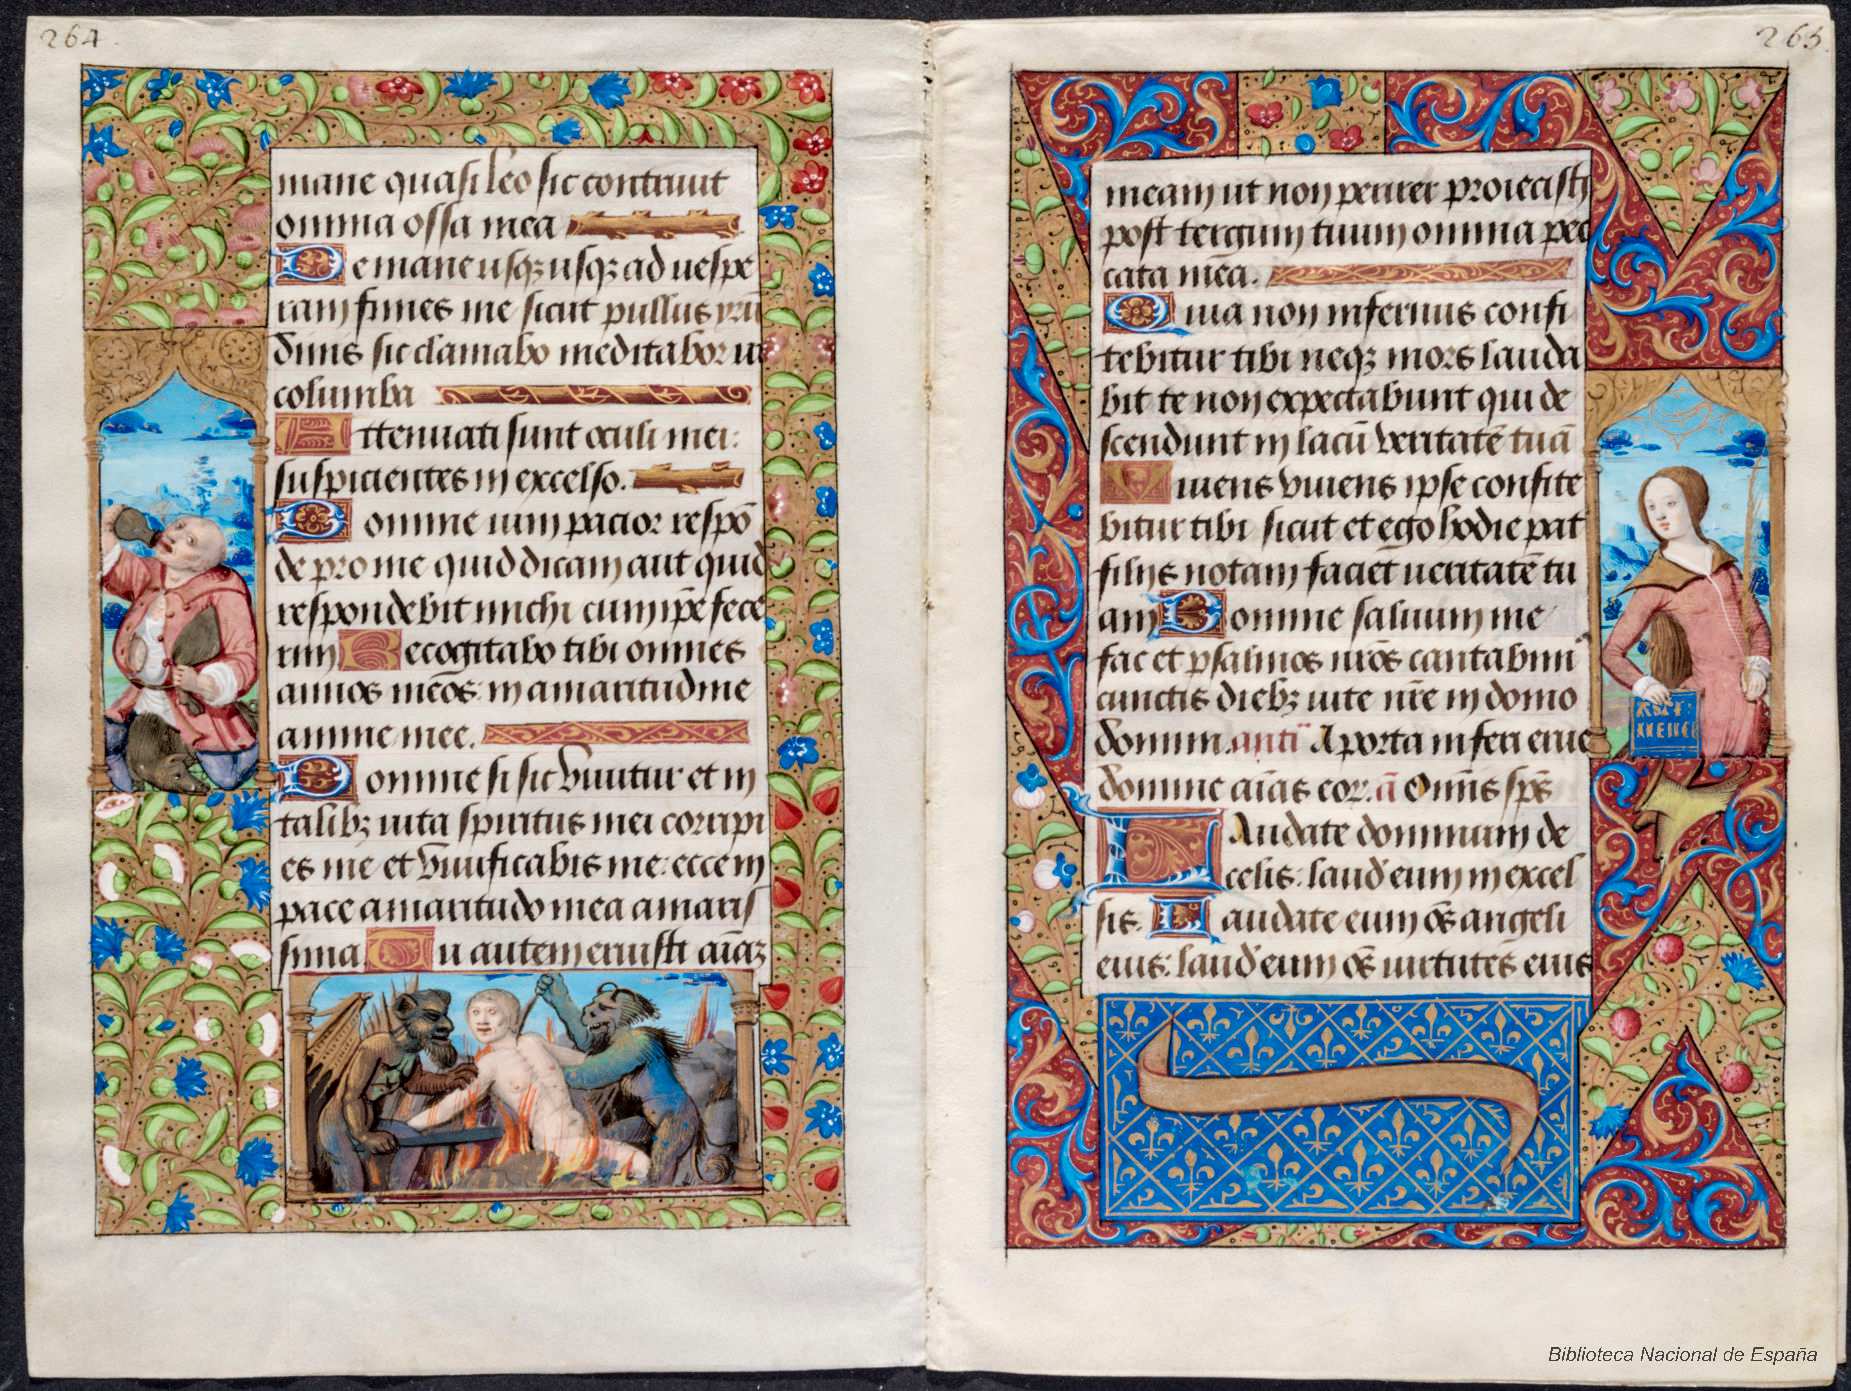 264
mane quasi leo sic contriuit
omnia ossa mea
De mane usqz usqz ad uespe
ram finies me sicut pullus yrū
dinis sic clamabo meditabor ut
columba
Attenuati sunt oculi mei:
suspicientes in excelso.
Domine uim pacior respō
de pro me quid dicam aut quid
respondebit michi cum ip̄e fece
rim Recogitabo tibi omnes
annos meōs: in amaritudine
anime mee.
Domine si sic viuitur et in
talibz uita spiritus mei corripi
es me et viuificabis me: ecce in
pace amaritudo mea amaris
sima Tu autem eruisti aīaz
265
meam ut non periret proiecisti
post tergum tuum omnia pec
cata mēa.
Quia non infernus confi
tebitur tibi neqz mors lauda
bit te non expectabunt qui de
scendunt in lacū veritatē tuā
Viuens viuens ipse confite
bitur tibi sicut et ego hodie pat
filiis notam faciēt ueritatē tu
am Domine saluum me
fac et psalmos nr̄os cantabim̄
cunctis diebz uite nr̄e in domo
domini. anti Aporta inferi erue
domine aīas eor. ā Omīs spс̄
Laudate dominum de
celis: laud' eum in excel
sis. Laudate eum oс̄ angeli
eius: laud' eum oс̄ uirtutēs eius
Biblioteca Nacional de España